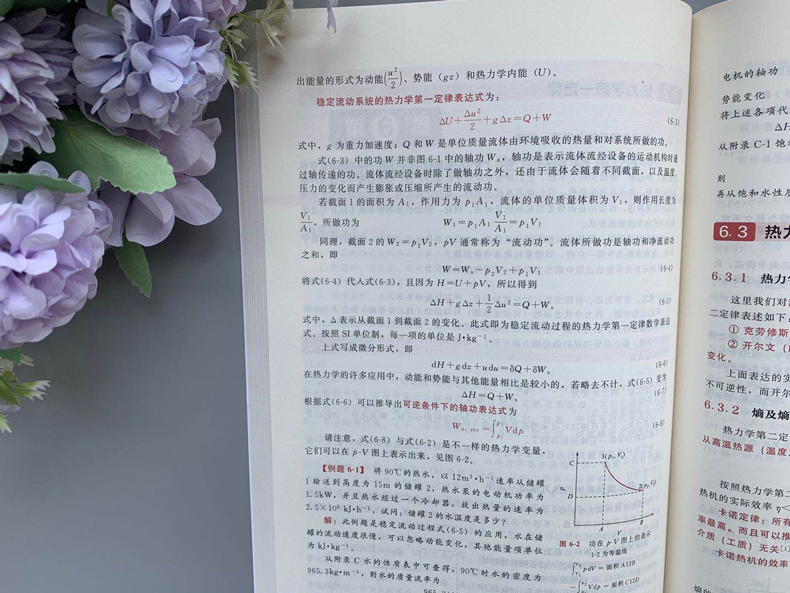 出能量的形式为动能(u²/2)、势能（gz）和热力学内能（U）。
稳定流动系统的热力学第一定律表达式为：
ΔU+Δu²/2+gΔz=Q+W (6-3)
式中，g 为重力加速度；Q 和 W 是单位质量流体由环境吸收的热量和对系统所做的功。
式(6-3) 中的功 W 并非图 6-1 中的轴功 Wₛ，轴功是表示流体流经设备的运动机构时通
过轴传递的功。流体流经设备时除了做轴功之外，还由于流体会随着不同截面，以及温度、
压力的变化而产生膨胀或压缩所产生的流动功。
若截面 1 的面积为 A₁，作用力为 p₁A₁，流体的单位质量体积为 V₁，则作用长度为
V₁/A₁，所做功为 W₁=p₁A₁ V₁/A₁=p₁V₁
同理，截面 2 的 W₂=p₂V₂，pV 通常称为“流动功”。流体所做功是轴功和净流动功
之和，即
W=Wₛ-p₂V₂+p₁V₁ (6-4)
将式(6-4) 代入式(6-3)，且因为 H=U+pV，所以得到
ΔH+gΔz+1/2Δu²=Q+Wₛ (6-5)
式中，Δ 表示从截面 1 到截面 2 的变化。此式即为稳定流动过程的热力学第一定律数学表达
式。按照 SI 单位制，每一项的单位是 J·kg⁻¹。
上式写成微分形式，即
dH+gdz+udu=δQ+δWₛ (6-6)
在热力学的许多应用中，动能和势能与其他能量相比是较小的，若略去不计，式(6-5) 变为
ΔH=Q+Wₛ (6-7)
根据式(6-6) 可以推导出可逆条件下的轴功表达式为
Wₛ, ᵣₑᵥ=∫Vdp (6-8)
请注意，式(6-8) 与式(6-2) 是不一样的热力学变量，
它们可以在 p-V 图上表示出来，见图 6-2。
【例题 6-1】 将 90℃的热水，以 12m³·h⁻¹速率从储罐
1 输送到高度为 15m 的储罐 2，热水泵的电动机功率为
1.5kW，并且热水经过一个冷却器，放出热量的速率为
2.5×10⁶ kJ·h⁻¹，试问：储罐 2 的水温度是多少？
解：此例题是稳定流动过程式(6-5) 的应用，水在储
罐的流动速度很慢，可以忽略动能变化，其他能量项单位
为 kJ·kg⁻¹。
从附录 C 水的性质表中可查得，90℃时水的密度为
965.3kg·m⁻³，则水的质量流率为
C
D
p
1(p₁,V₁)
2(p₂,V₂)
A
B
V
图 6-2 功在 p-V 图上的表示
1-2 为等温线
∫pdV=面积 A12B
-∫Vdp=面积 C12D
电机的轴功
势能变化
将上述各项代
ΔH
从附录 C-1 饱
则
再从饱和水性质
6.3 热力
6.3.1 热力学
这里我们对
二定律表述如下
① 克劳修斯
② 开尔文（
变化。
上面表达的实
不可逆性，而开尔
6.3.2 熵及熵
热力学第二定
从高温热源（温度
按照热力学第二
热机的实际效率 η<
卡诺定律：所有
率最高。而且可以推
介质（工质）无关[1]
卡诺热机的效率